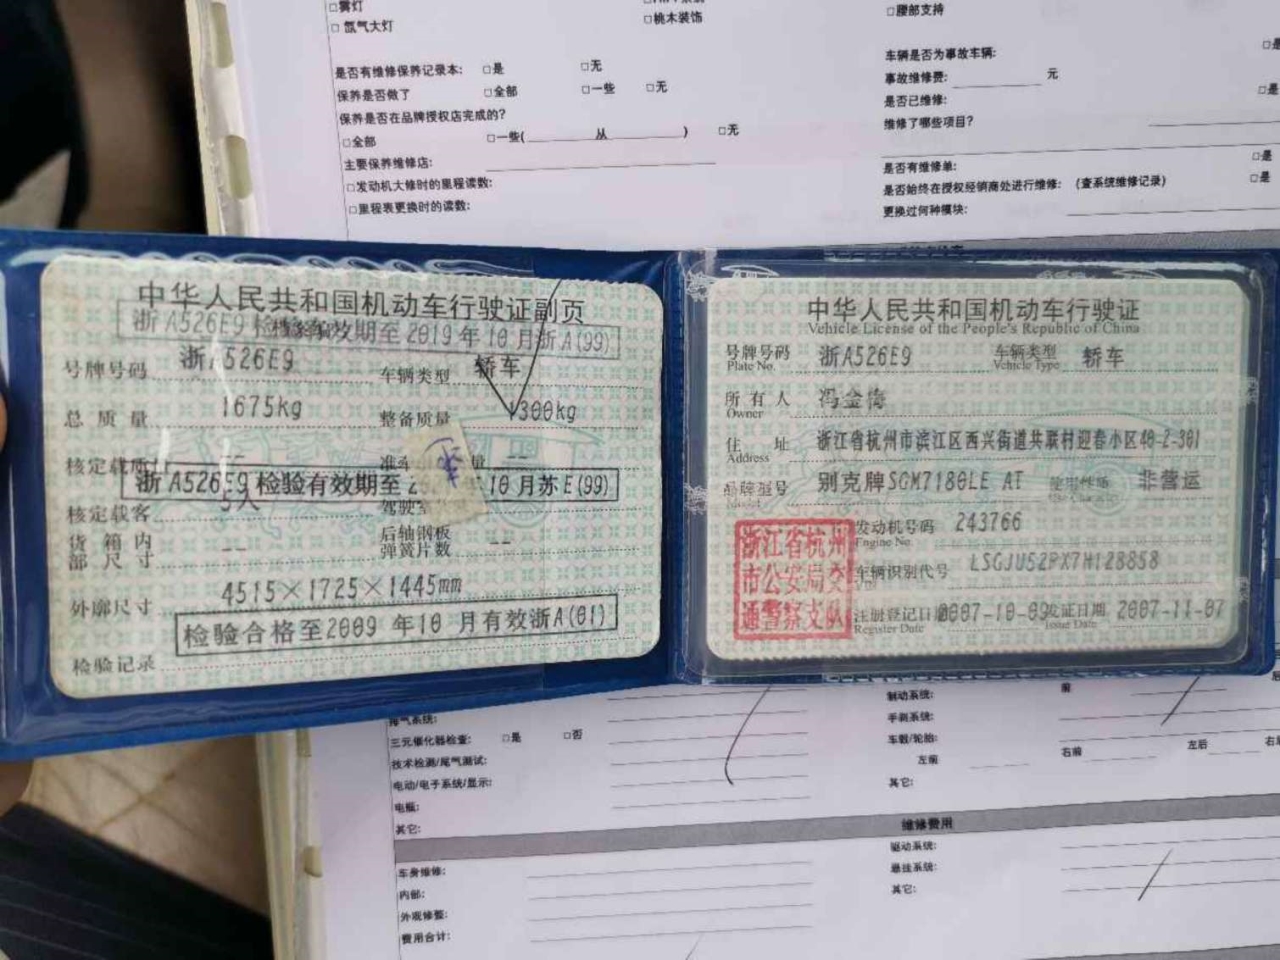 □雾灯
□氙气大灯
□桃木装饰
□腰部支持
是否有维修保养记录本: □是 □无
保养是否做了 □全部 □一些 □无
保养是否在品牌授权店完成的?
□全部 □一些( 从 ) □无
主要保养维修店:
□发动机大修时的里程读数:
□里程表更换时的读数:
车辆是否为事故车辆: □是
事故维修费: 元
是否已维修: □是
维修了哪些项目?
是否有维修单: □是
是否始终在授权经销商处进行维修: (查系统维修记录) □是
更换过何种模块:
中华人民共和国机动车行驶证副页
浙A526E9 检验有效期至2019年10月浙A(99)
号牌号码 浙A526E9 车辆类型 轿车
总质量 1675kg 整备质量 1300kg
核定载质量 -- --
浙A526E9 检验有效期至 年10月苏E(99)
核定载客 5人 驾驶室
货箱内部尺寸 -- 后轴钢板弹簧片数 --
外廓尺寸 4515×1725×1445mm
检验合格至2009 年10 月有效浙A(01)
检验记录
中华人民共和国机动车行驶证
Vehicle License of the People's Republic of China
号牌号码 浙A526E9 车辆类型 轿车
Plate No. Vehicle Type
所有人 冯金海
Owner
住址 浙江省杭州市滨江区西兴街道共联村迎春小区40-2-301
Address
品牌型号 别克牌SGM7180LE AT 使用性质 非营运
浙江省杭州市公安局交通警察支队
发动机号码 243766
Engine No.
车辆识别代号 LSGJU52PX7H128858
注册登记日期 2007-10-09 发证日期 2007-11-07
Register Date Issue Date
排气系统:
三元催化器检查: □是 □否
技术检测/尾气测试:
电动/电子系统/显示:
电瓶:
其它:
制动系统: 前
手刹系统:
车毂/轮胎:
左前 右前 左后 右后
其它:
维修费用
车身维修:
内部:
外观修整:
费用合计:
驱动系统:
悬挂系统:
其它: